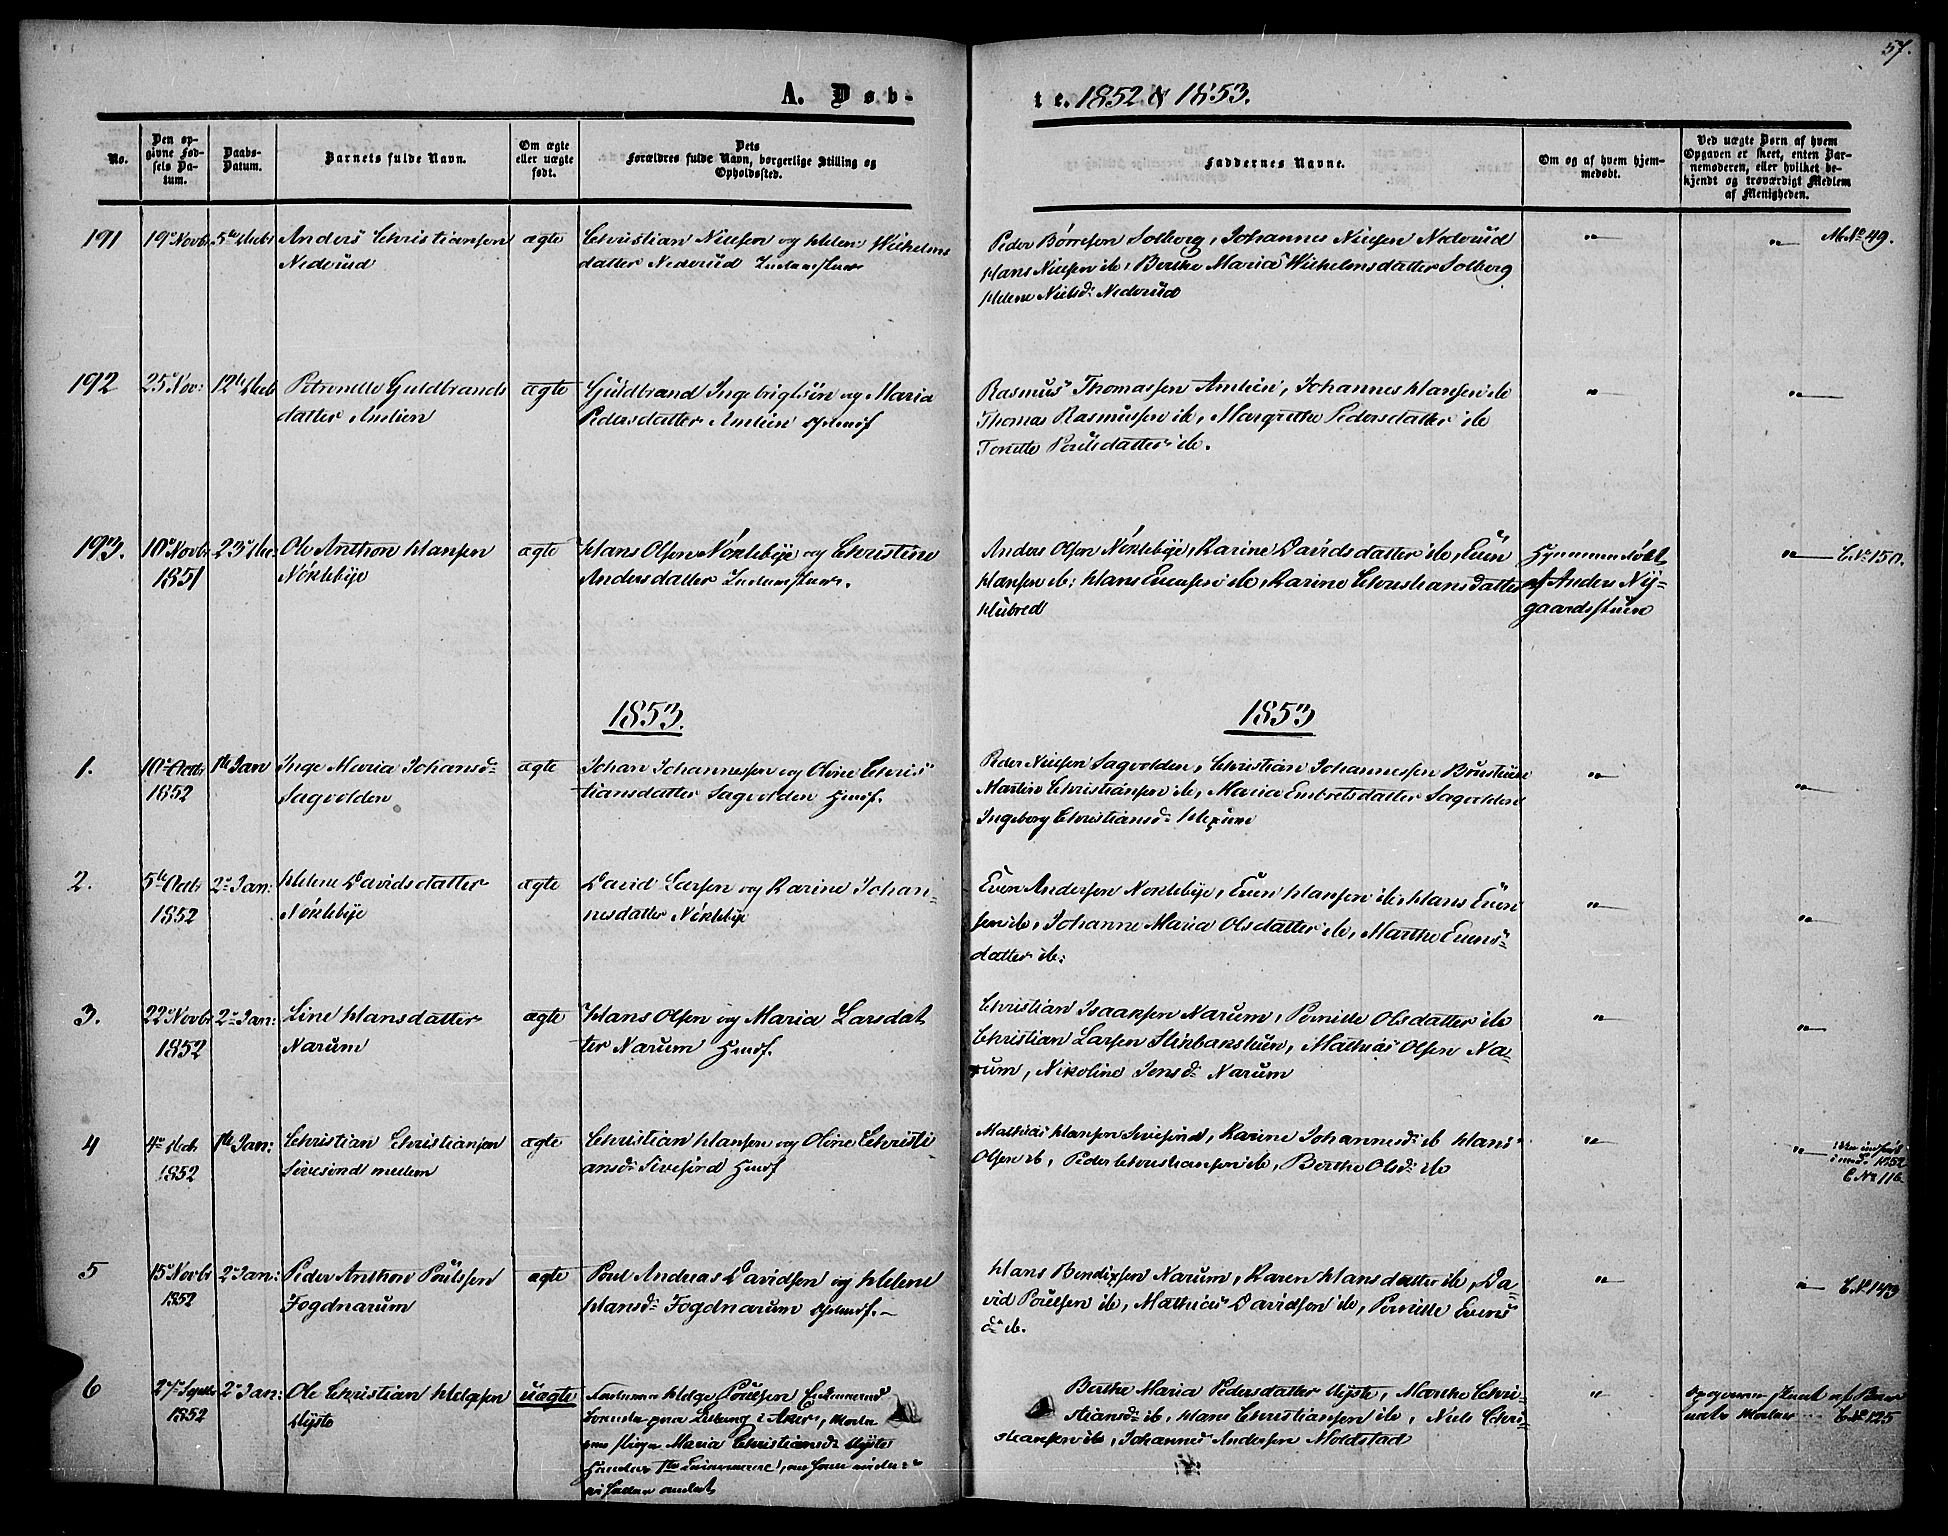 57.
A. Døb-
te. 1852 & 1853.
No.
Den op-
givne Fød-
sels Da-
tum.
Daabs-
Datum.
Barnets fulde Navn.
Om ægte
eller uægte
født.
Dets
Forældres fulde Navn, borgerlige Stilling og
Opholdssted.
Faddernes Navne.
Om og af hvem hjem-
medøbt.
Ved uægte Børn af hvem
Opgaven er skeet, enten Bar-
nemoderen, eller hvilket be-
kjendt og troværdigt Medlem
af Menigheden.
191 19de Novbr 5te Decbr Anders Christiansen ægte Christian Nielsen og Helene Wilhelms
Nederud
datter Nederud
Peder Børresen Solberg, Johannes Nielsen Nederud
Hans Nielsen ib, Berthe Maria Wilhelmsdatter Solberg
Helene Nielsd: Nederud
" " M.No 49.
192 25de Nov: 12te Decb Petronelle Guldbrands ægte Guldbrand Ingebrigtsen og Maria
datter Amlien
Pedersdatter Amlien
Rasmus Thomassen Amlien, Johannes Hansen ib
Thomas Rasmussen ib, Margrethe Pedersdatter ib
Tonette Poulsdatter ib.
" "
193. 10de Novbr 23de Ole Anthon Hansen ægte Hans Olsen Nøklebye og Christine
1851 Nøklebye
Andersdatter
Anders Olsen Nøklebye, Karine Davidsdatter ib, Even
Hansen ib: Hans Evensen ib, Karine Christiansdatter
Hubred
Hjemmedøbt
af Anders Ny-
gaardsstuen
" C.No 150.
1853.
1853
1. 10de Octbr 1te Jan Inge Maria Johansd: ægte Johan Johannessen og Oline Chris
1852 Sagvolden
tiansdatter Sagvolden Huusf.
Peder Nielsen Sagvolden, Christian Johannessen
Martin Christiansen ib, Maria Embretsdatter Sagvolden
Ingeborg Christiansd:
" "
2. 5te Octbr 2den Jan: Helene Davidsdatter ægte David Larsen og Karine Johan-
1852 Nøklebye
nesdatter Nøklebye
Even Andersen Nøklebye, Even Hansen ib, Hans Even
sen ib, Johanne Maria Olsdatter ib, Marthe Evens-
datter ib:
" "
3. 22de Novbr 2den Jan: Line Hansdatter ægte Hans Olsen og Maria Larsdat
1852 Narum
ter Narum Huusf.
Christian Isaaksen Narum, Pernille Olsdatter ib
Christian Larsen, Mathias Olsen Na-
rum, Nikoline Jensd: Narum
" "
4 4de Decb 1te Jan: Christian Christiansen ægte Christian Hansen og Oline Christi
1852 Sivesind mellem
ansd: Sivesind Huusf
Mathias Hansen Sivesind, Karine Johannesd: ib Hans
Olsen ib, Peder Christiansen ib, Berthe Olsd: ib
" "
1852
C No 116
5 15de Novbr 2den Jan: Peder Anthon Poulsen ægte Poul Andreas Davidsen og Helene
1852 Fogdnarum
Hansd: Fogdnarum
Hans Bendixsen Narum, Karen Hansdatter ib, Da-
vid Poulsen ib, Mathias Davidsen ib, Pernille Evens
d: ib.
" " C.No 143
6 27de Septbr 2den Jan: Ole Christian Helgesen uægte Helge Poulsen
1852
i Aker,
Maria Christiansd:
Berthe Maria Pedersdatter, Marthe Chri-
stiansd: ib, Hans Christiansen ib, Niels Chri-
stiansen ib, Johannes Andersen Moldstad
"
C No 125